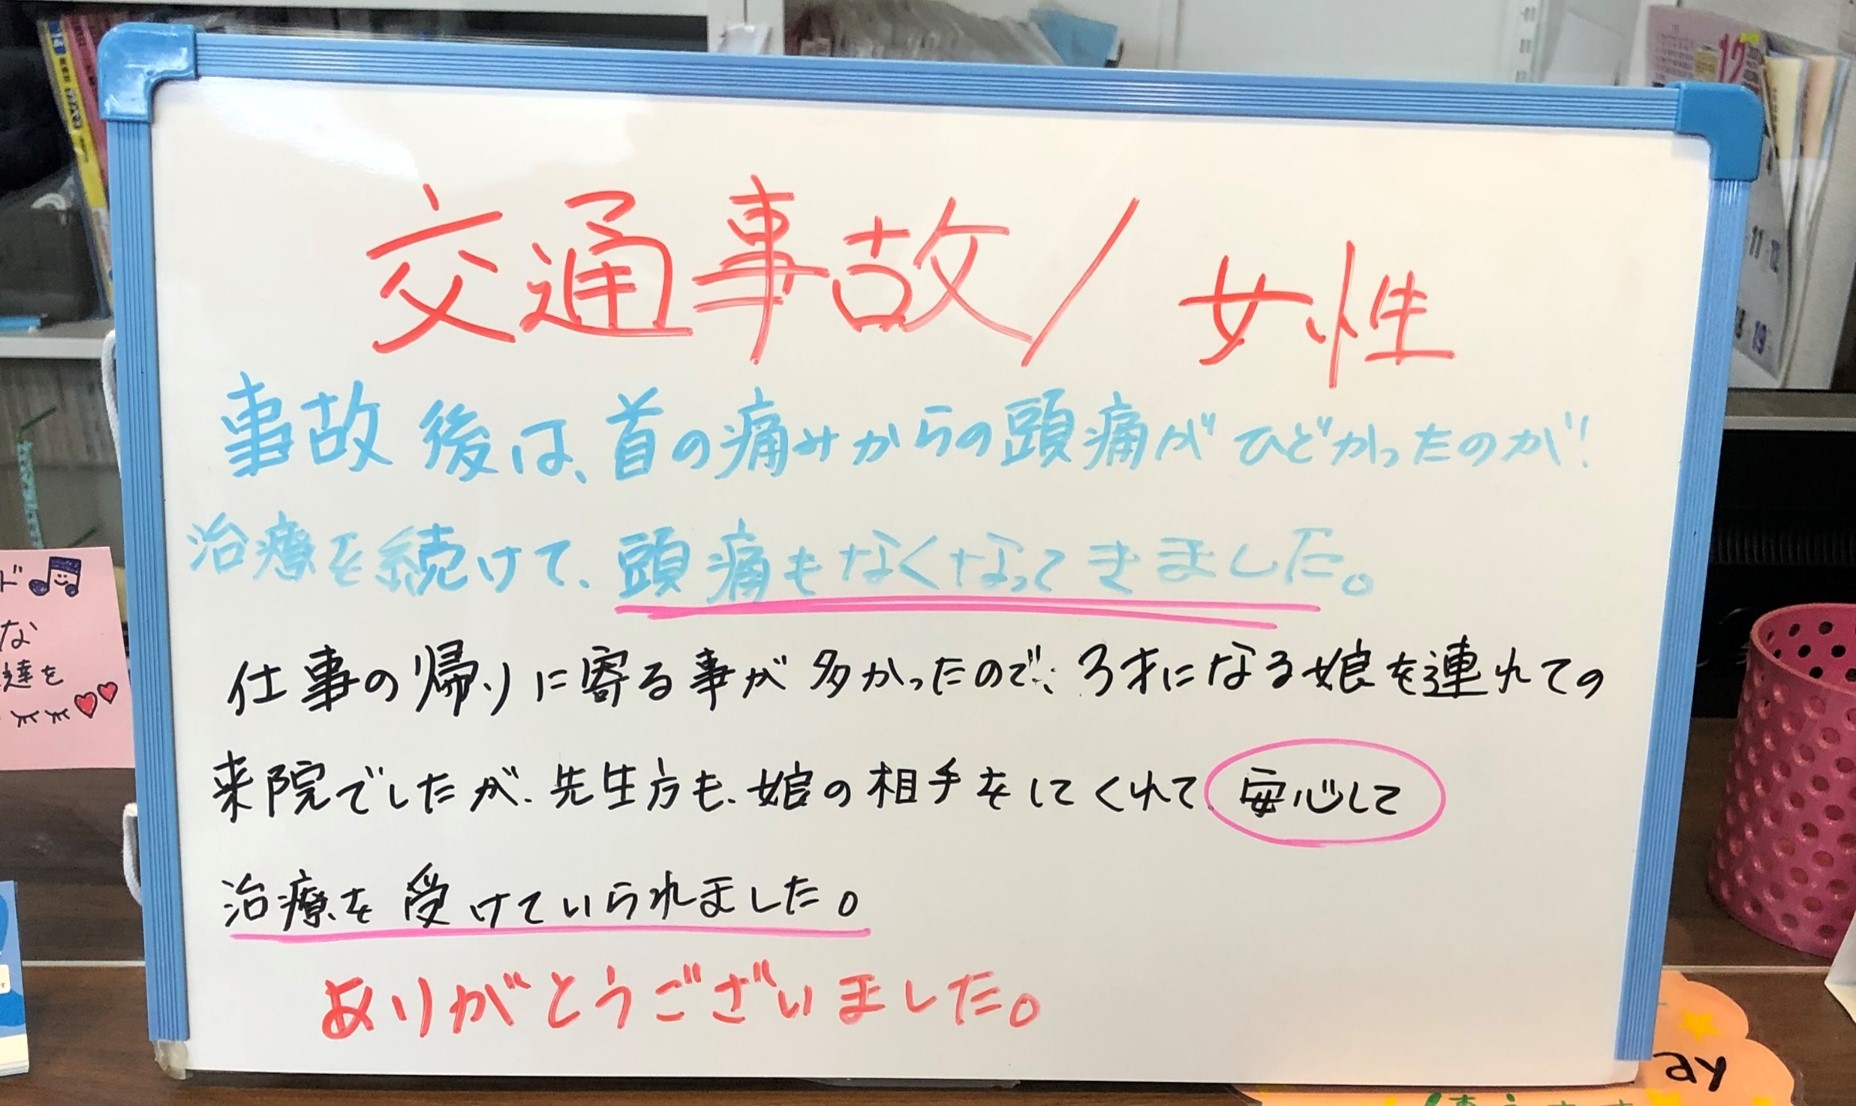 交通事故/女性
事故後は、首の痛みからの頭痛がひどかったのが!
治療を続けて、頭痛もなくなってきました。
仕事の帰りに寄る事が多かったので、3才になる娘を連れての
来院でしたが、先生方も、娘の相手をしてくれて、安心して
治療を受けていられました。
ありがとうございました。
ド
な
達を
12
11
19
ay